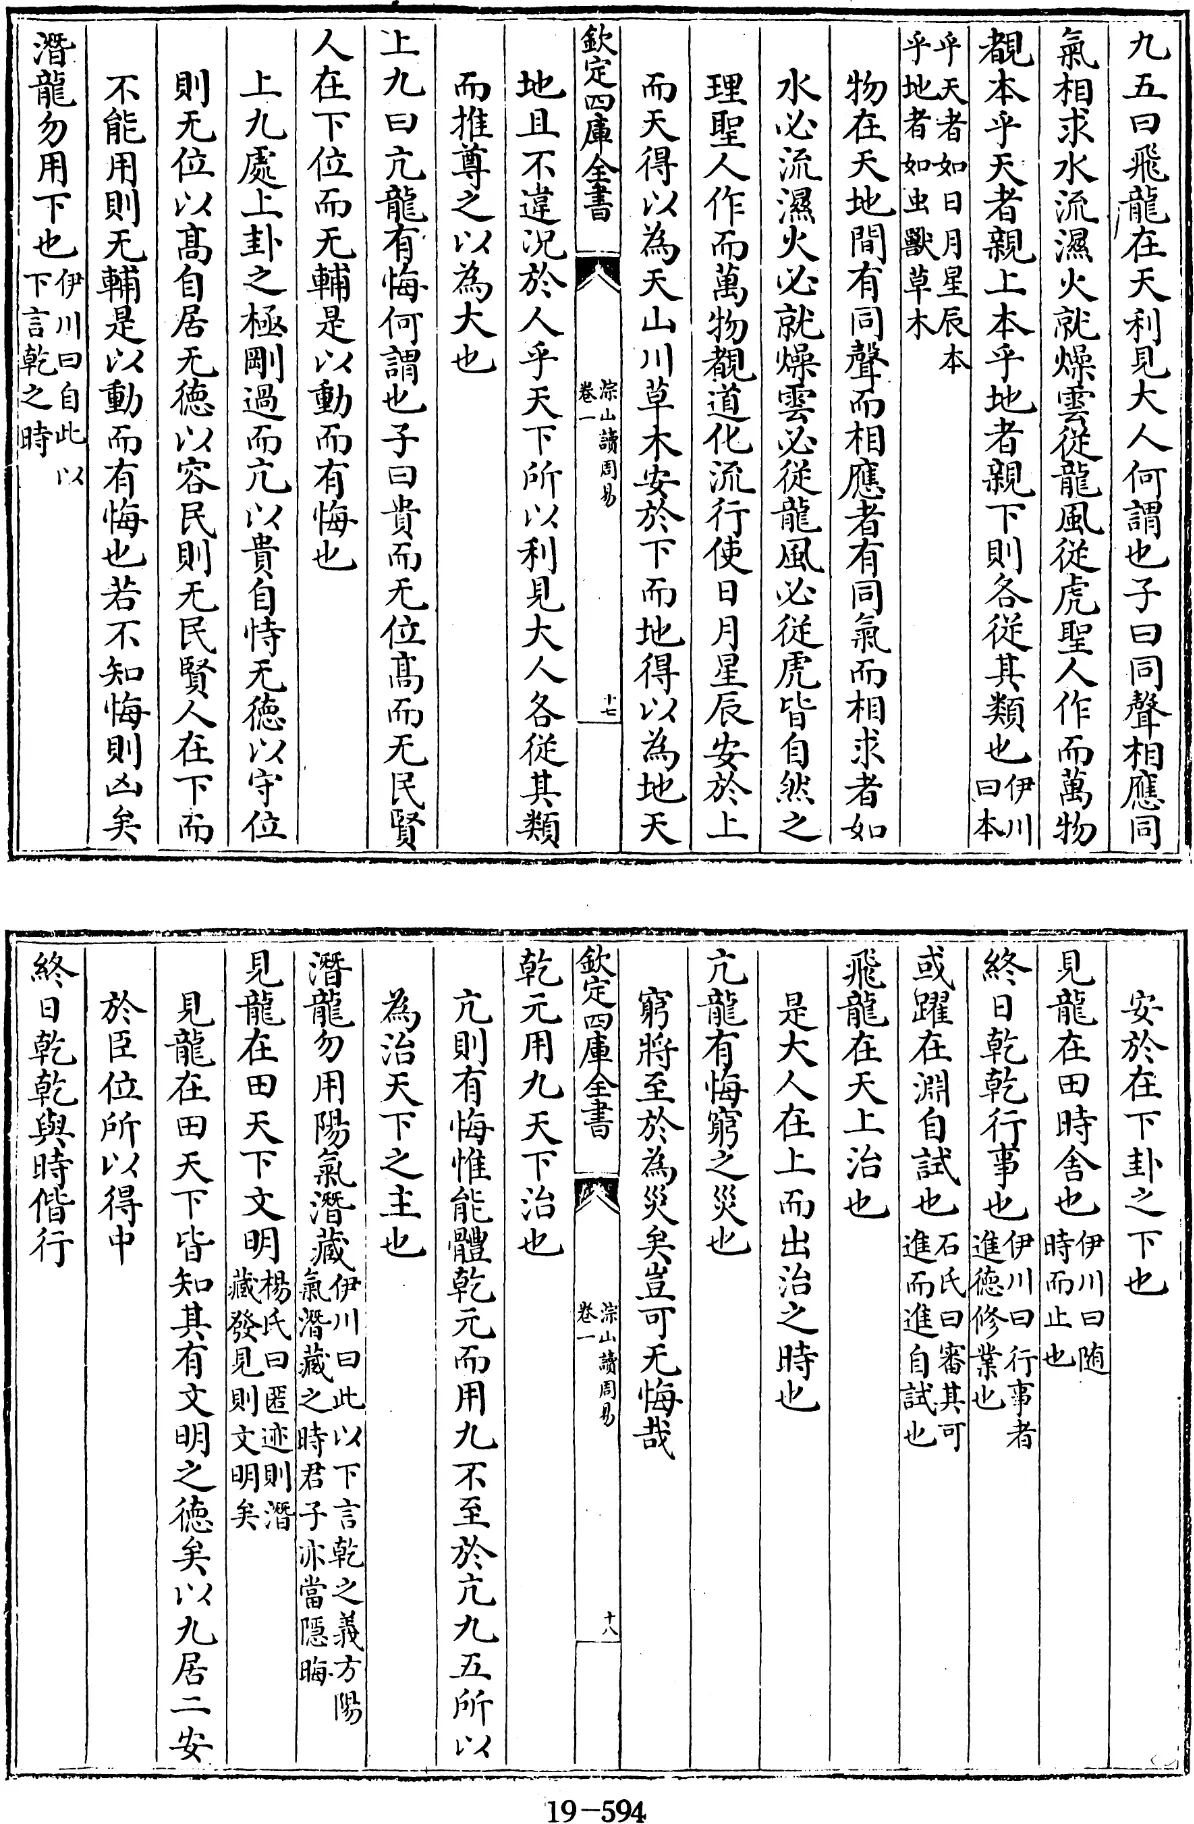 九五曰飛龍在天利見大人何謂也子曰同聲相應同
氣相求水流濕火就燥雲從龍風從虎聖人作而萬物
覩本乎天者親上本乎地者親下則各從其類也伊川曰本
乎天者如日月星辰本乎地者如虫獸草木
物在天地間有同聲而相應者有同氣而相求者如
水必流濕火必就燥雲必從龍風必從虎皆自然之
理聖人作而萬物覩道化流行使日月星辰安於上
而天得以為天山川草木安於下而地得以為地天
欽定四庫全書
淙山讀周易
卷一
十七
地且不違況於人乎天下所以利見大人各從其類
而推尊之以為大也
上九曰亢龍有悔何謂也子曰貴而无位髙而无民賢
人在下位而无輔是以動而有悔也
上九處上卦之極剛過而亢以貴自恃无德以守位
則无位以髙自居无德以容民則无民賢人在下而
不能用則无輔是以動而有悔也若不知悔則凶矣
潛龍勿用下也伊川曰自此以下言乾之時
安於在下卦之下也
見龍在田時舍也伊川曰随時而止也
終日乾乾行事也伊川曰行事者進德修業也
或躍在淵自試也石氏曰審其可進而進自試也
飛龍在天上治也
是大人在上而出治之時也
亢龍有悔窮之災也
窮將至於為災矣豈可无悔哉
欽定四庫全書
淙山讀周易
卷一
十八
乾元用九天下治也
亢則有悔惟能體乾元而用九不至於亢九五所以
為治天下之主也
潛龍勿用陽氣潛藏伊川曰此以下言乾之義方陽氣潛藏之時君子亦當隱晦
見龍在田天下文明楊氏曰匿迹則潛藏發見則文明矣
見龍在田天下皆知其有文明之德矣以九居二安
於臣位所以得中
終日乾乾與時偕行
19-594